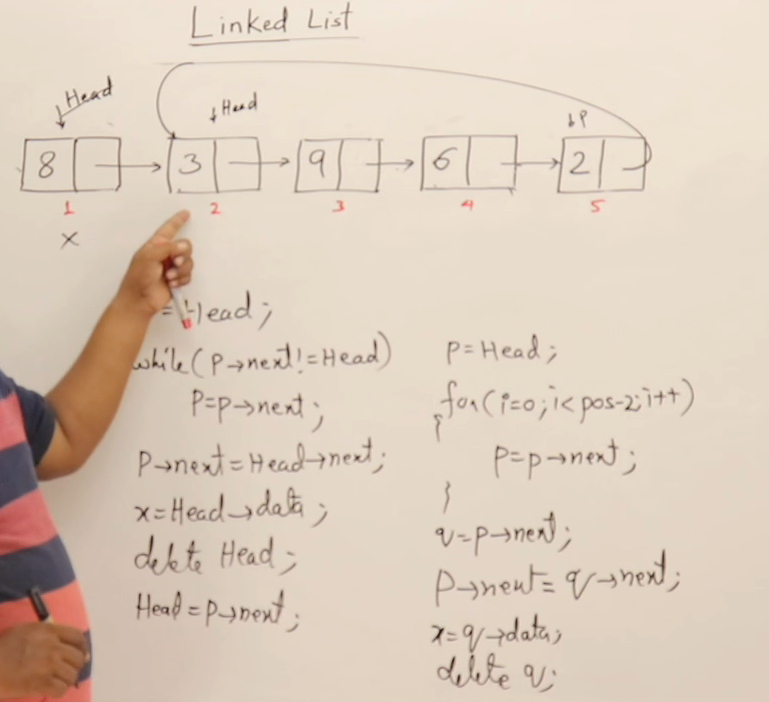 Linked List
Head
Head
P
8 3 9 6 2
1 2 3 4 5
x
= Head;
while(P→next!=Head)
P=p→next;
P→next=Head→next;
x=Head→data;
delete Head;
Head=p→next;
P=Head;
for(i=0;i<pos-2;i++)
{
P=p→next;
}
q=p→next;
P→next=q→next;
x=q→data;
delete q;